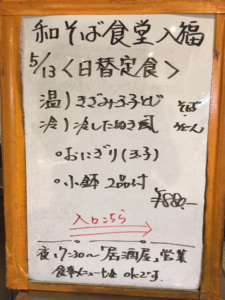 和そば食堂入福
5/13〈日替定食〉
温)きざみ玉子とじ そば
冷)冷したぬき風 うどん
○おにぎり(玉子)
○小鉢 2品付
¥880ー
入口こちら
夜、17:30〜「居酒屋」営業
食事メニューも OKです。